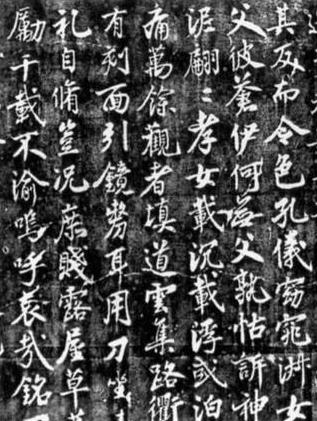 其反而令色孔儀窈窕淑女
父彼蒼伊何無父孰怙訴神
泥翩〻孝女載沉載浮或泊
痛萬餘觀者填道雲集路衢
有刻面引鏡剺耳用刀坐
礼自脩豈況庶賤露屋草
勵千載不渝嗚呼哀哉銘